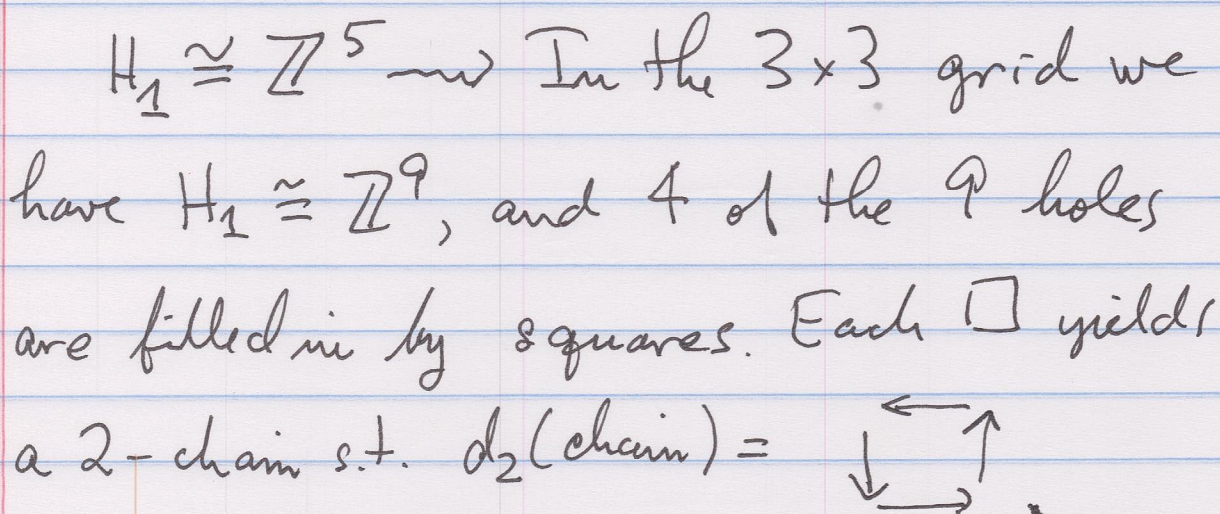 H₁ ≅ ℤ⁵ ⇝ In the 3×3 grid we
have H₁ ≅ ℤ⁹, and 4 of the 9 holes
are filled in by squares. Each □ yields
a 2-chain s.t. d₂(chain) = ← ↓ → ↑